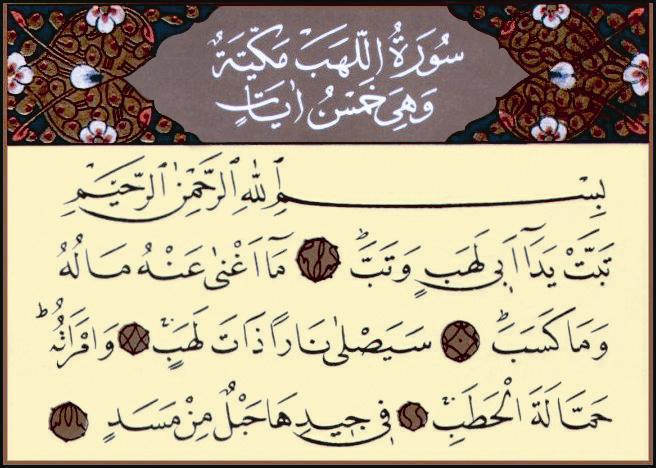 سُورَةُ اللَّهَبِ مَكِّيَّةٌ
وَهِيَ خَمْسُ اٰيَاتٍ
بِسْمِ اللهِ الرَّحْمٰنِ الرَّحِيمِ
تَبَّتْ يَدَٓا اَبٖى لَهَبٍ وَتَبَّؕ مَٓا اَغْنٰى عَنْهُ مَالُهُ
وَمَا كَسَبَؕ سَيَصْلٰى نَارًا ذَاتَ لَهَبٍۚ وَامْرَاَتُهُؕ
حَمَّالَةَ الْحَطَبِۚ فٖى جٖيدِهَا حَبْلٌ مِنْ مَسَدٍ